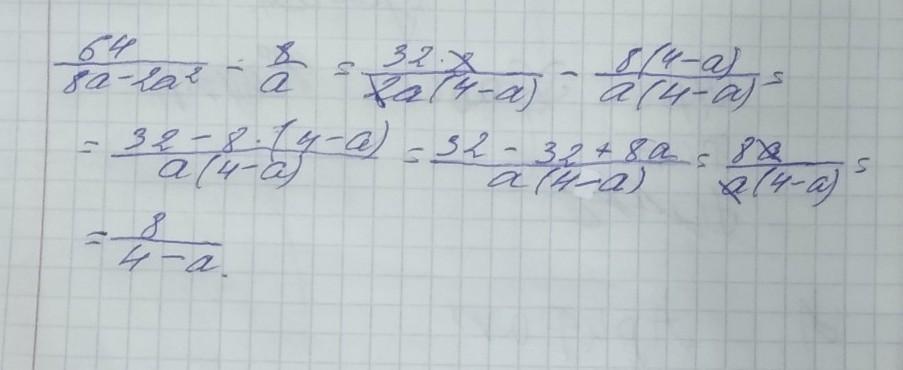 64/(8a-2a²) - 8/a = 32·2/(2a(4-a)) - 8(4-a)/(a(4-a)) =
= (32-8·(4-a))/(a(4-a)) = (32-32+8a)/(a(4-a)) = 8a/(a(4-a)) =
= 8/(4-a).